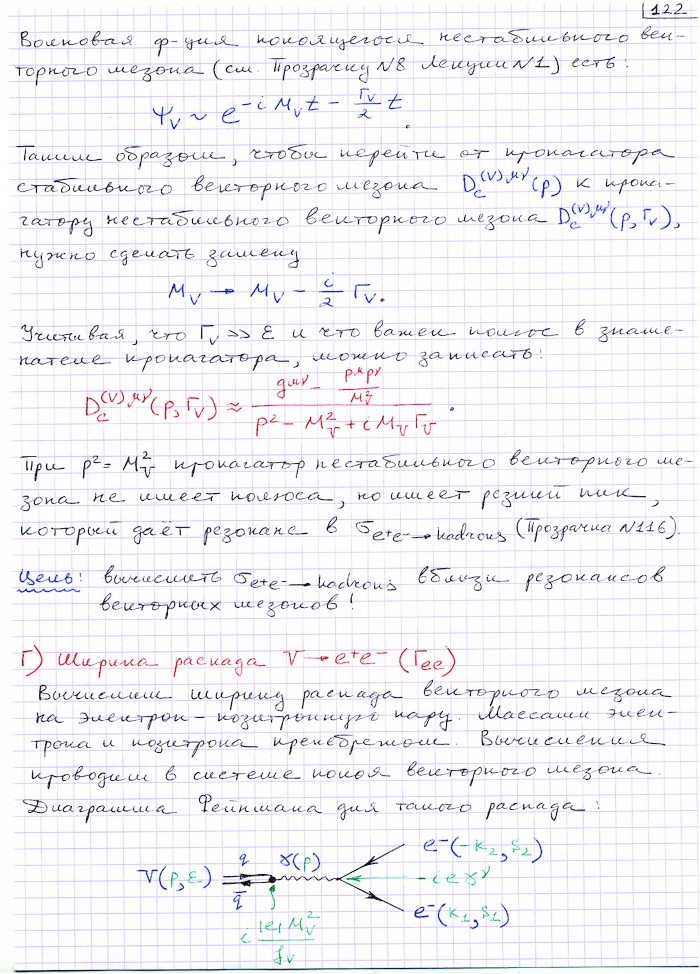 122
Волновая ф-ция покоящегося нестабильного век-
торного мезона (см. Прозрачку N8 Лекции N1) есть:
Ψ_V ~ e^{-i M_V t - Γ_V/2 t}.
Таким образом, чтобы перейти от пропагатора
стабильного векторного мезона D_c^{(V) μν}(p) к пропа-
гатору нестабильного векторного мезона D_c^{(V) μν}(p, Γ_V),
нужно сделать замену
M_V → M_V - i/2 Γ_V.
Учитывая, что Γ_V >> ε и что важен полюс в знаме-
нателе пропагатора, можно записать:
D_c^{(V) μν}(p, Γ_V) ≈ (g^{μν} - p^μ p^ν / M_V^2) / (p^2 - M_V^2 + i M_V Γ_V).
При p^2 = M_V^2 пропагатор нестабильного векторного ме-
зона не имеет полюса, но имеет резкий пик,
который даёт резонанс в σ_{e+e- → hadrons} (Прозрачка N116).
Цель: вычислить σ_{e+e- → hadrons} вблизи резонансов
векторных мезонов!
Г) Ширина распада V → e+e- (Γ_ee)
Вычислим ширину распада векторного мезона
на электрон-позитронную пару. Массами элек-
трона и позитрона пренебрежом. Вычисления
проводим в системе покоя векторного мезона.
Диаграмма Фейнмана для такого распада:
V(p, ε) q q̄ γ(p) e^-(-k_2, s_2)
-ieγ^ν
e^-(k_1, s_1)
i |e| M_V^2 / f_V